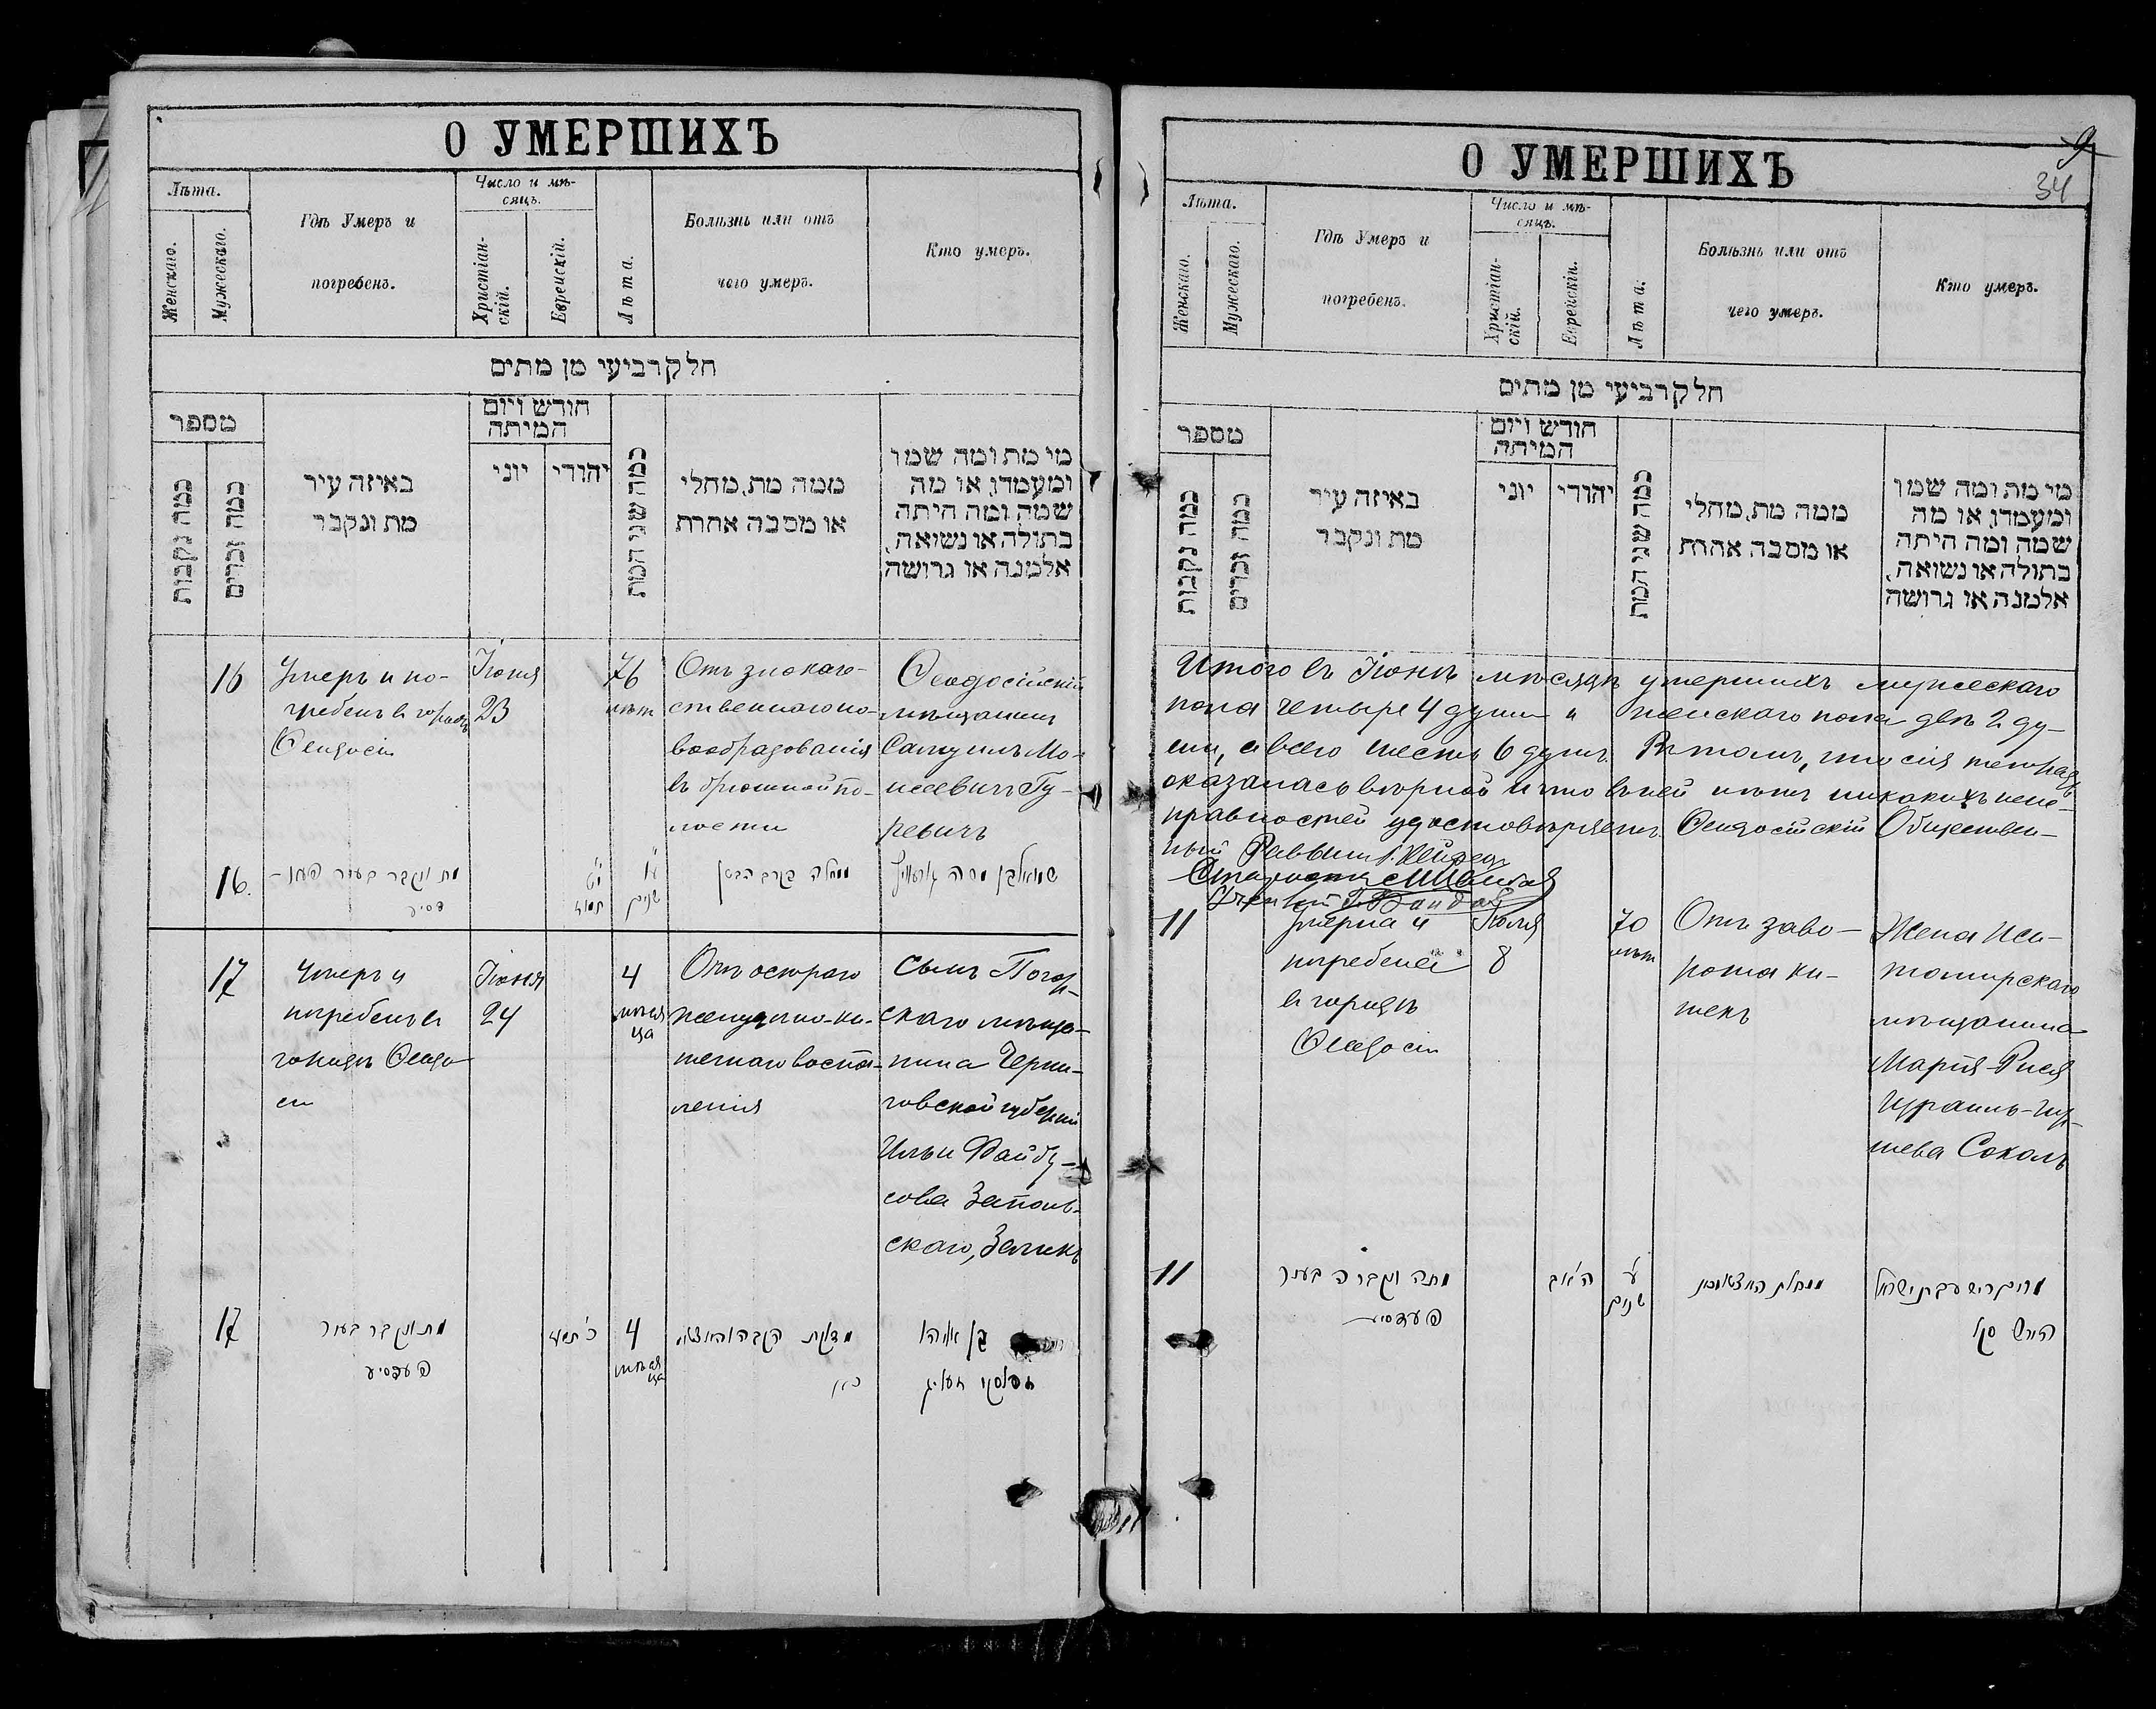 О УМЕРШИХЪ
Лѣта.
Женскаго.
Мужескаго.
Гдѣ Умеръ и
погребенъ.
Число и мѣ-
сяцъ.
Христіан-
скій.
Еврейскій.
Лѣта.
Болѣзнь или отъ
чего умеръ.
Кто умеръ.
חלק רביעי מן מתים
מספר
כמה נקבות
כמה זכרים
באיזה עיר
מת ונקבר
חודש ויום
המיתה
יוני
יהודי
כמה שני המת
ממה מת, מחלי
או מסבה אחרת
מי מת ומה שמו
ומעמדו, או מה
שמה ומה היתה
בתולה או נשואה,
אלמנה או גרושה
16
Умеръ и по-
гребенъ в городѣ
Ѳеодосіи
Іюня
23
76
лѣтъ
Отъ злокаче-
ственнаго но-
вообразованія
въ брюшной по-
лости
Ѳеодосійскій
мѣщанинъ
Самуилъ Мо-
исеевичъ Гу-
ревичъ
16.
מת ונקבר בעיר פעא-
דסיע
י״ט
תמוז
ע״ו
שנים
מחלה בקרב הבטן
שמואל בן משה גורעוויץ
17
Умеръ и
погребенъ в
городѣ Ѳеодо
сіи
Іюня
24
4
мѣся
ца
Отъ остраго
желудочно-ки-
шечнаго воспа-
ленія
Сынъ Погар-
скаго мѣща-
нина Черни-
говской губерніи
Ильи Файбу-
сова Заполь-
скаго, Зеликъ
17
מת ונקבר בעיר
פעאדסיע
כ׳ תמוז
4
мѣся
ца
מדלקת הקבה והמצא
בן אליהו
О УМЕРШИХЪ
9
34
Лѣта.
Женскаго.
Мужескаго.
Гдѣ Умеръ и
погребенъ.
Число и мѣ-
сяцъ.
Христіан-
скій.
Еврейскій.
Лѣта.
Болѣзнь или отъ
чего умеръ.
Кто умеръ.
חלק רביעי מן מתים
מספר
כמה נקבות
כמה זכרים
באיזה עיר
מת ונקבר
חודש ויום
המיתה
יוני
יהודי
כמה שני המת
ממה מת, מחלי
או מסבה אחרת
מי מת ומה שמו
ומעמדו, או מה
שמה ומה היתה
בתולה או נשואה,
אלמנה או גרושה
Итого въ Іюнѣ мѣсяцѣ умершихъ мужескаго
пола четыре 4 души и женскаго пола двѣ 2 ду-
ши, а всего шесть 6 душъ. Въ томъ, что сія тетрадь
оказалась вѣрной и что въ ней нѣтъ никакихъ неис-
правностей удостовѣряетъ Ѳеодосійскій Обществен-
ный Раввинъ
Староста
Ученый
11
Умерла и
погребена
въ городѣ
Ѳеодосіи
Іюля
8
70
лѣтъ
Отъ заво-
рота ки-
шекъ
Жена Жи-
томирскаго
мѣщанина
Марія-Рися
Израиль-Гер-
шева Соколъ
11
מתה ונקברה בעיר
פעאדסיע
ה׳ אב
ע׳
שנים
ממחלת
מרים רישע בת ישראל
הירש